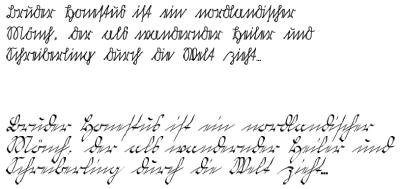 Bruder Honestus ist ein nordlandischer
Mönch, der als wandernder Heiler und
Schreiberling durch die Welt zieht...
Bruder Honestus ist ein nordlandischer
Mönch, der als wandernder Heiler und
Schreiberling durch die Welt zieht...